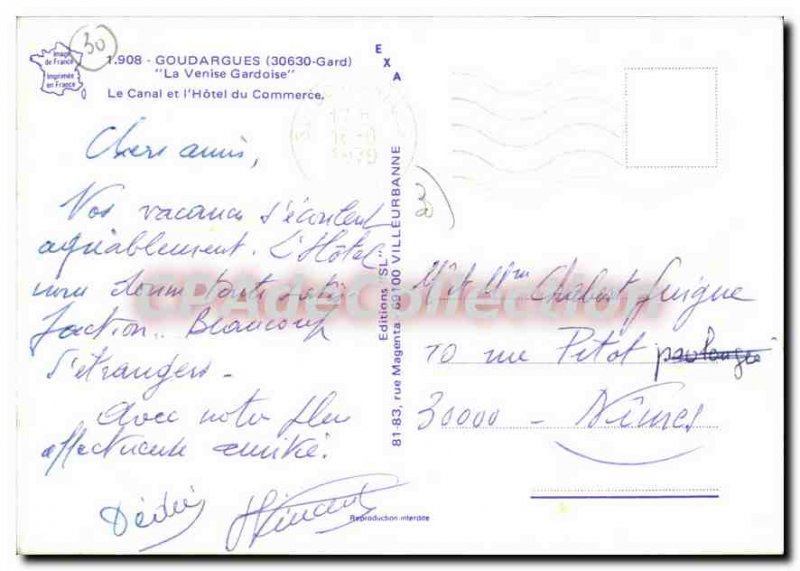 30
Image
de France
Imprimée
en France
1.908 - GOUDARGUES (30630-Gard)
"La Venise Gardoise"
Le Canal et l'Hôtel du Commerce.
EXA
Chers amis,
Nos vacances s'écoulent
agréablement. L'Hôtel
nous donne toute satis
faction. Beaucoup
d'étrangers -
Avec notre plus
affectueuse amitié.
Dédé
Editions "SL"
81-83, rue Magenta - 69100 VILLEURBANNE
3
Mr et Mme Chabert
70 rue Pitot prolongée
30000 - Nîmes
Reproduction interdite
CPAdeCollection